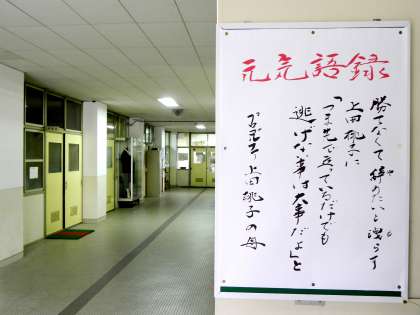 元気語録
勝てなくて辞めたいと漏らす
上田桃子に
「つま先で立っているだけでも
逃げな事は大事だよ」と
プロゴルファー 上田桃子の母